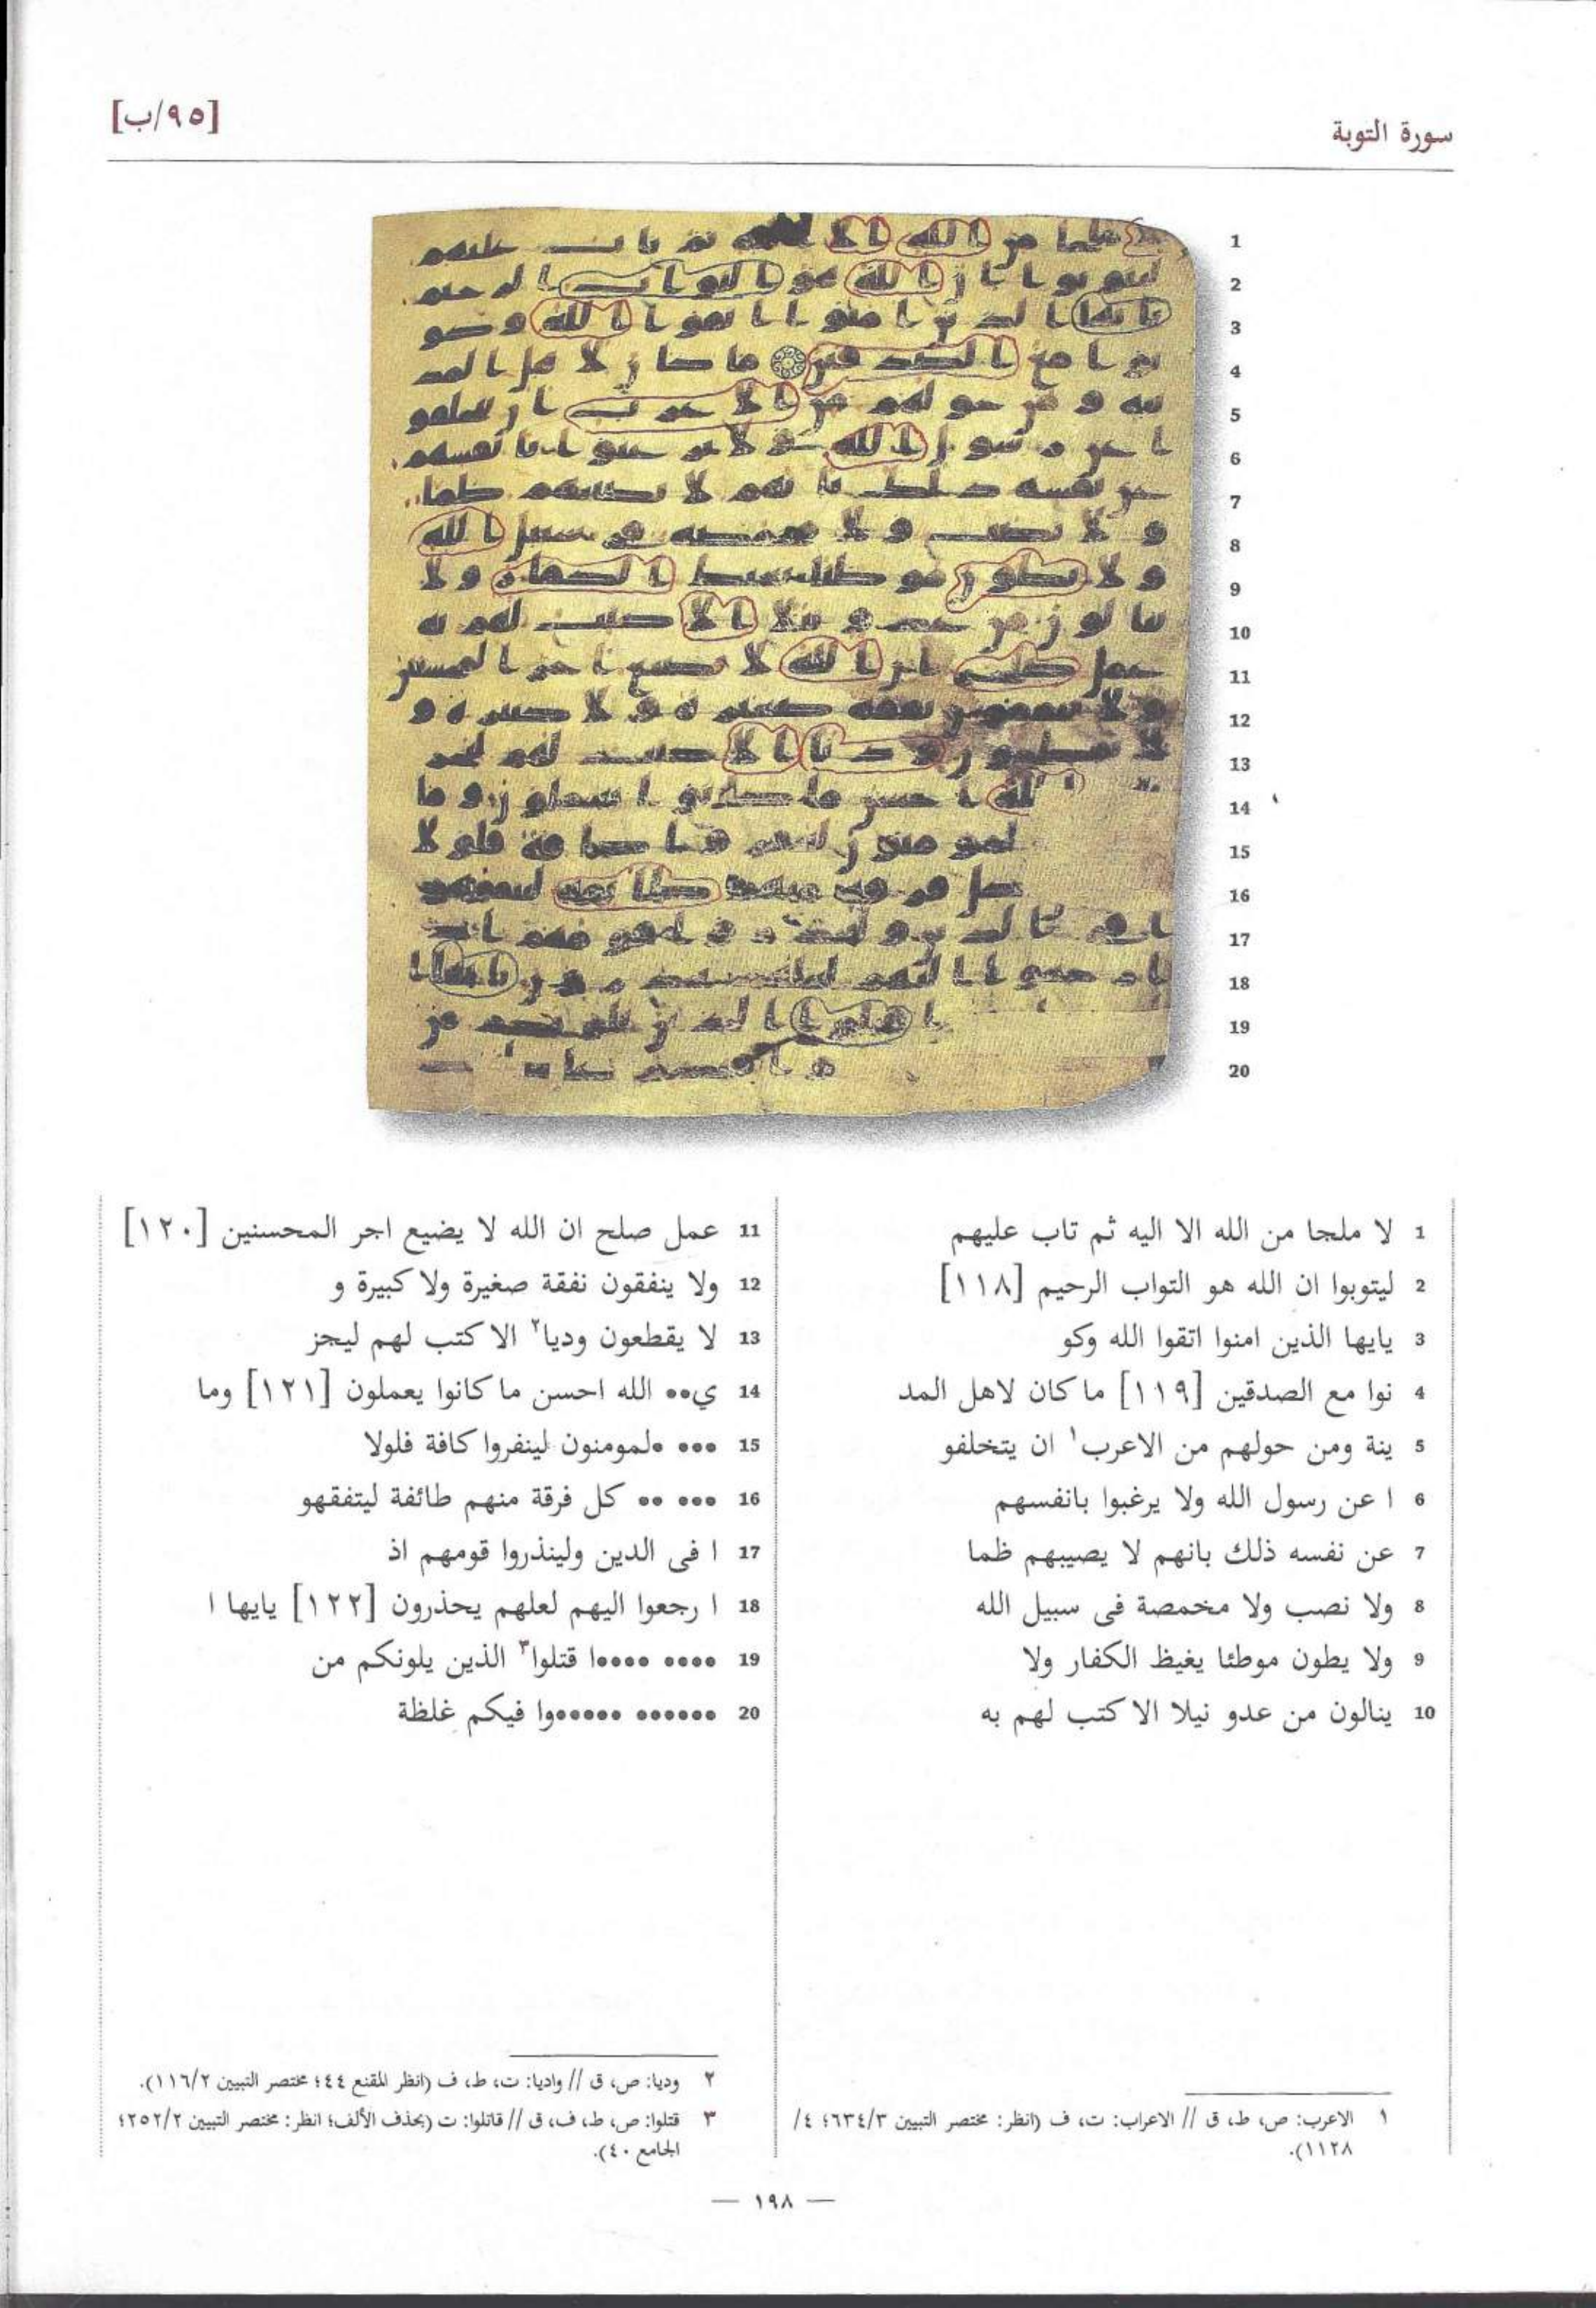 سورة التوبة
[٩٥/ب]
1
2
3
4
5
6
7
8
9
10
11
12
13
14
15
16
17
18
19
20
1 لا ملجا من الله الا اليه ثم تاب عليهم
2 ليتوبوا ان الله هو التواب الرحيم [١١٨]
3 يايها الذين امنوا اتقوا الله وكو
4 نوا مع الصدقين [١١٩] ما كان لاهل المد
5 ينة ومن حولهم من الاعرب١ ان يتخلفو
6 ا عن رسول الله ولا يرغبوا بانفسهم
7 عن نفسه ذلك بانهم لا يصيبهم ظما
8 ولا نصب ولا مخمصة فى سبيل الله
9 ولا يطون موطئا يغيظ الكفار ولا
10 ينالون من عدو نيلا الا كتب لهم به
11 عمل صلح ان الله لا يضيع اجر المحسنين [١٢٠]
12 ولا ينفقون نفقة صغيرة ولا كبيرة و
13 لا يقطعون وديا٢ الا كتب لهم ليجز
14 ي•• الله احسن ما كانوا يعملون [١٢١] وما
15 ••• •لمومنون لينفروا كافة فلولا
16 ••• •• كل فرقة منهم طائفة ليتفقهو
17 ا فى الدين ولينذروا قومهم اذ
18 ا رجعوا اليهم لعلهم يحذرون [١٢٢] يايها ا
19 •••• ••••ا قتلوا٣ الذين يلونكم من
20 •••••• ••••••وا فيكم غلظة
١ الاعرب: ص، ط، ق // الاعراب: ت، ف (انظر: مختصر التبيين ٦٣٤/٣؛ ٤/
١١٢٨).
٢ وديا: ص، ق // واديا: ت، ط، ف (انظر المقنع ٤٤؛ مختصر التبيين ١١٦/٢).
٣ قتلوا: ص، ط، ف، ق // قاتلوا: ت (بحذف الألف؛ انظر: مختصر التبيين ٢٥٢/٢؛
الجامع ٤٠).
— ١٩٨ —